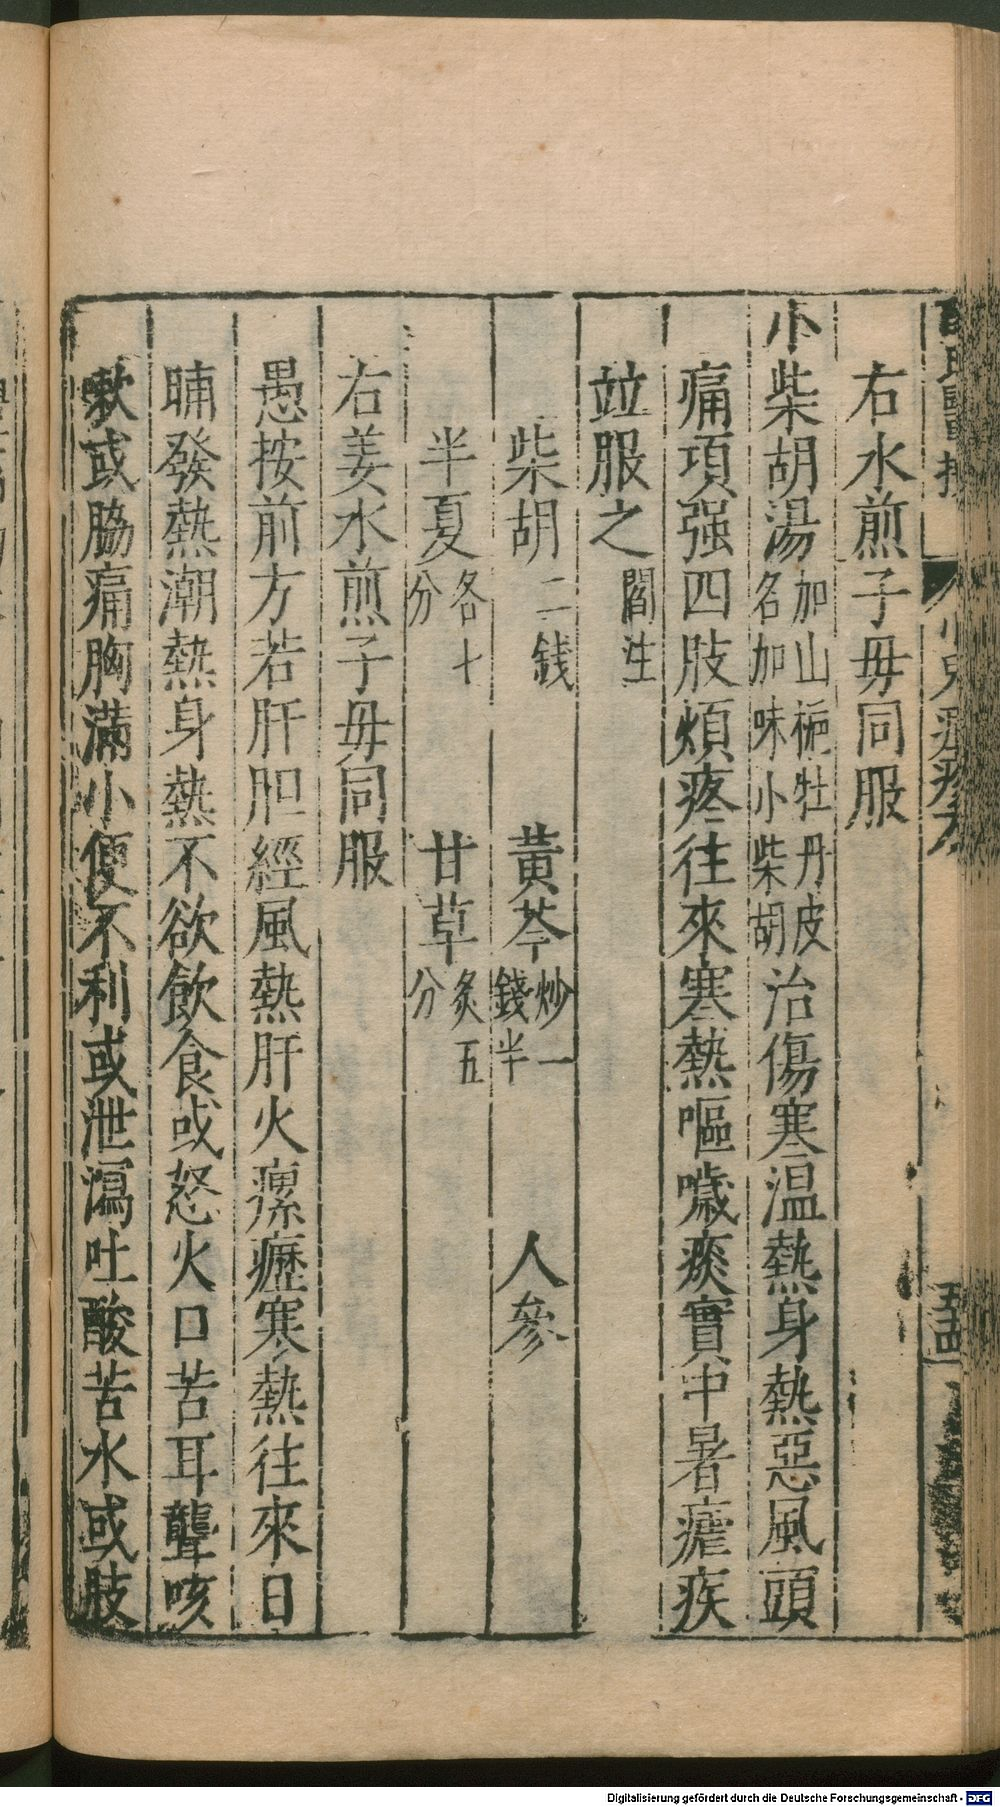 右水煎子毋同服
小柴胡湯加山梔牡丹皮名加味小柴胡治傷寒温熱身熱惡風頭
痛項强四肢煩疼往來寒熱嘔噦痰實中暑瘧疾
竝服之 閻註
柴胡二錢 黃芩炒一錢半 人參
半夏各七分 甘草炙五分
右姜水煎子毋同服
愚按前方若肝胆經風熱肝火瘰癧寒熱往來日
晡發熱潮熱身熱不欲飲食或怒火口苦耳聾咳
嗽或脇痛胸滿小便不利或泄瀉吐酸苦水或肢
Digitalisierung gefördert durch die Deutsche Forschungsgemeinschaft - DFG